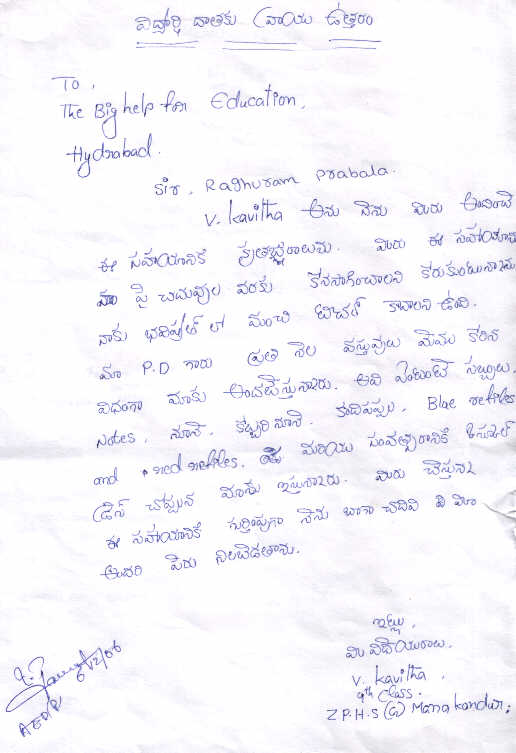 విద్యార్థి దాతకు వ్రాయు ఉత్తరం
To,
The Big help for Education,
Hydrabad.
Sir, Raghuram Prabala.
V. Kavitha అను నేను మీరు అందించే
ఈ సహాయానికి కృతజ్ఞురాలును. మీరు ఈ సహాయాని
మా పై చదువుల వరకు కొనసాగించాలని కోరుకుంటున్నాను
నాకు భవిష్యత్ లో మంచి టీచర్ కావాలని ఉంది.
మా P.D గారు ప్రతి నెల వస్తువులు మేము కోరిన
విధంగా మాకు అందచేస్తున్నారు. అవి ఏంటంటే సబ్బులు,
Notes, నూనె, కొబ్బరి నూనె, కందిపప్పు, Blue refiles
and red refiles. మరియు సంవత్సరానికి ఓ స్కూల్
డ్రెస్ చొప్పున మాకు ఇస్తున్నారు. మీరు చేస్తున్న
ఈ సహాయానికి గుర్తింపుగా నేను బాగా చదివి మీ
అందరి పేరు నిలబెడతాను.
ఇట్లు,
మీ విధేయురాలు,
V. Kavitha,
9th Class.
Z.P.H.S (G) Manakondur;
6/2/06